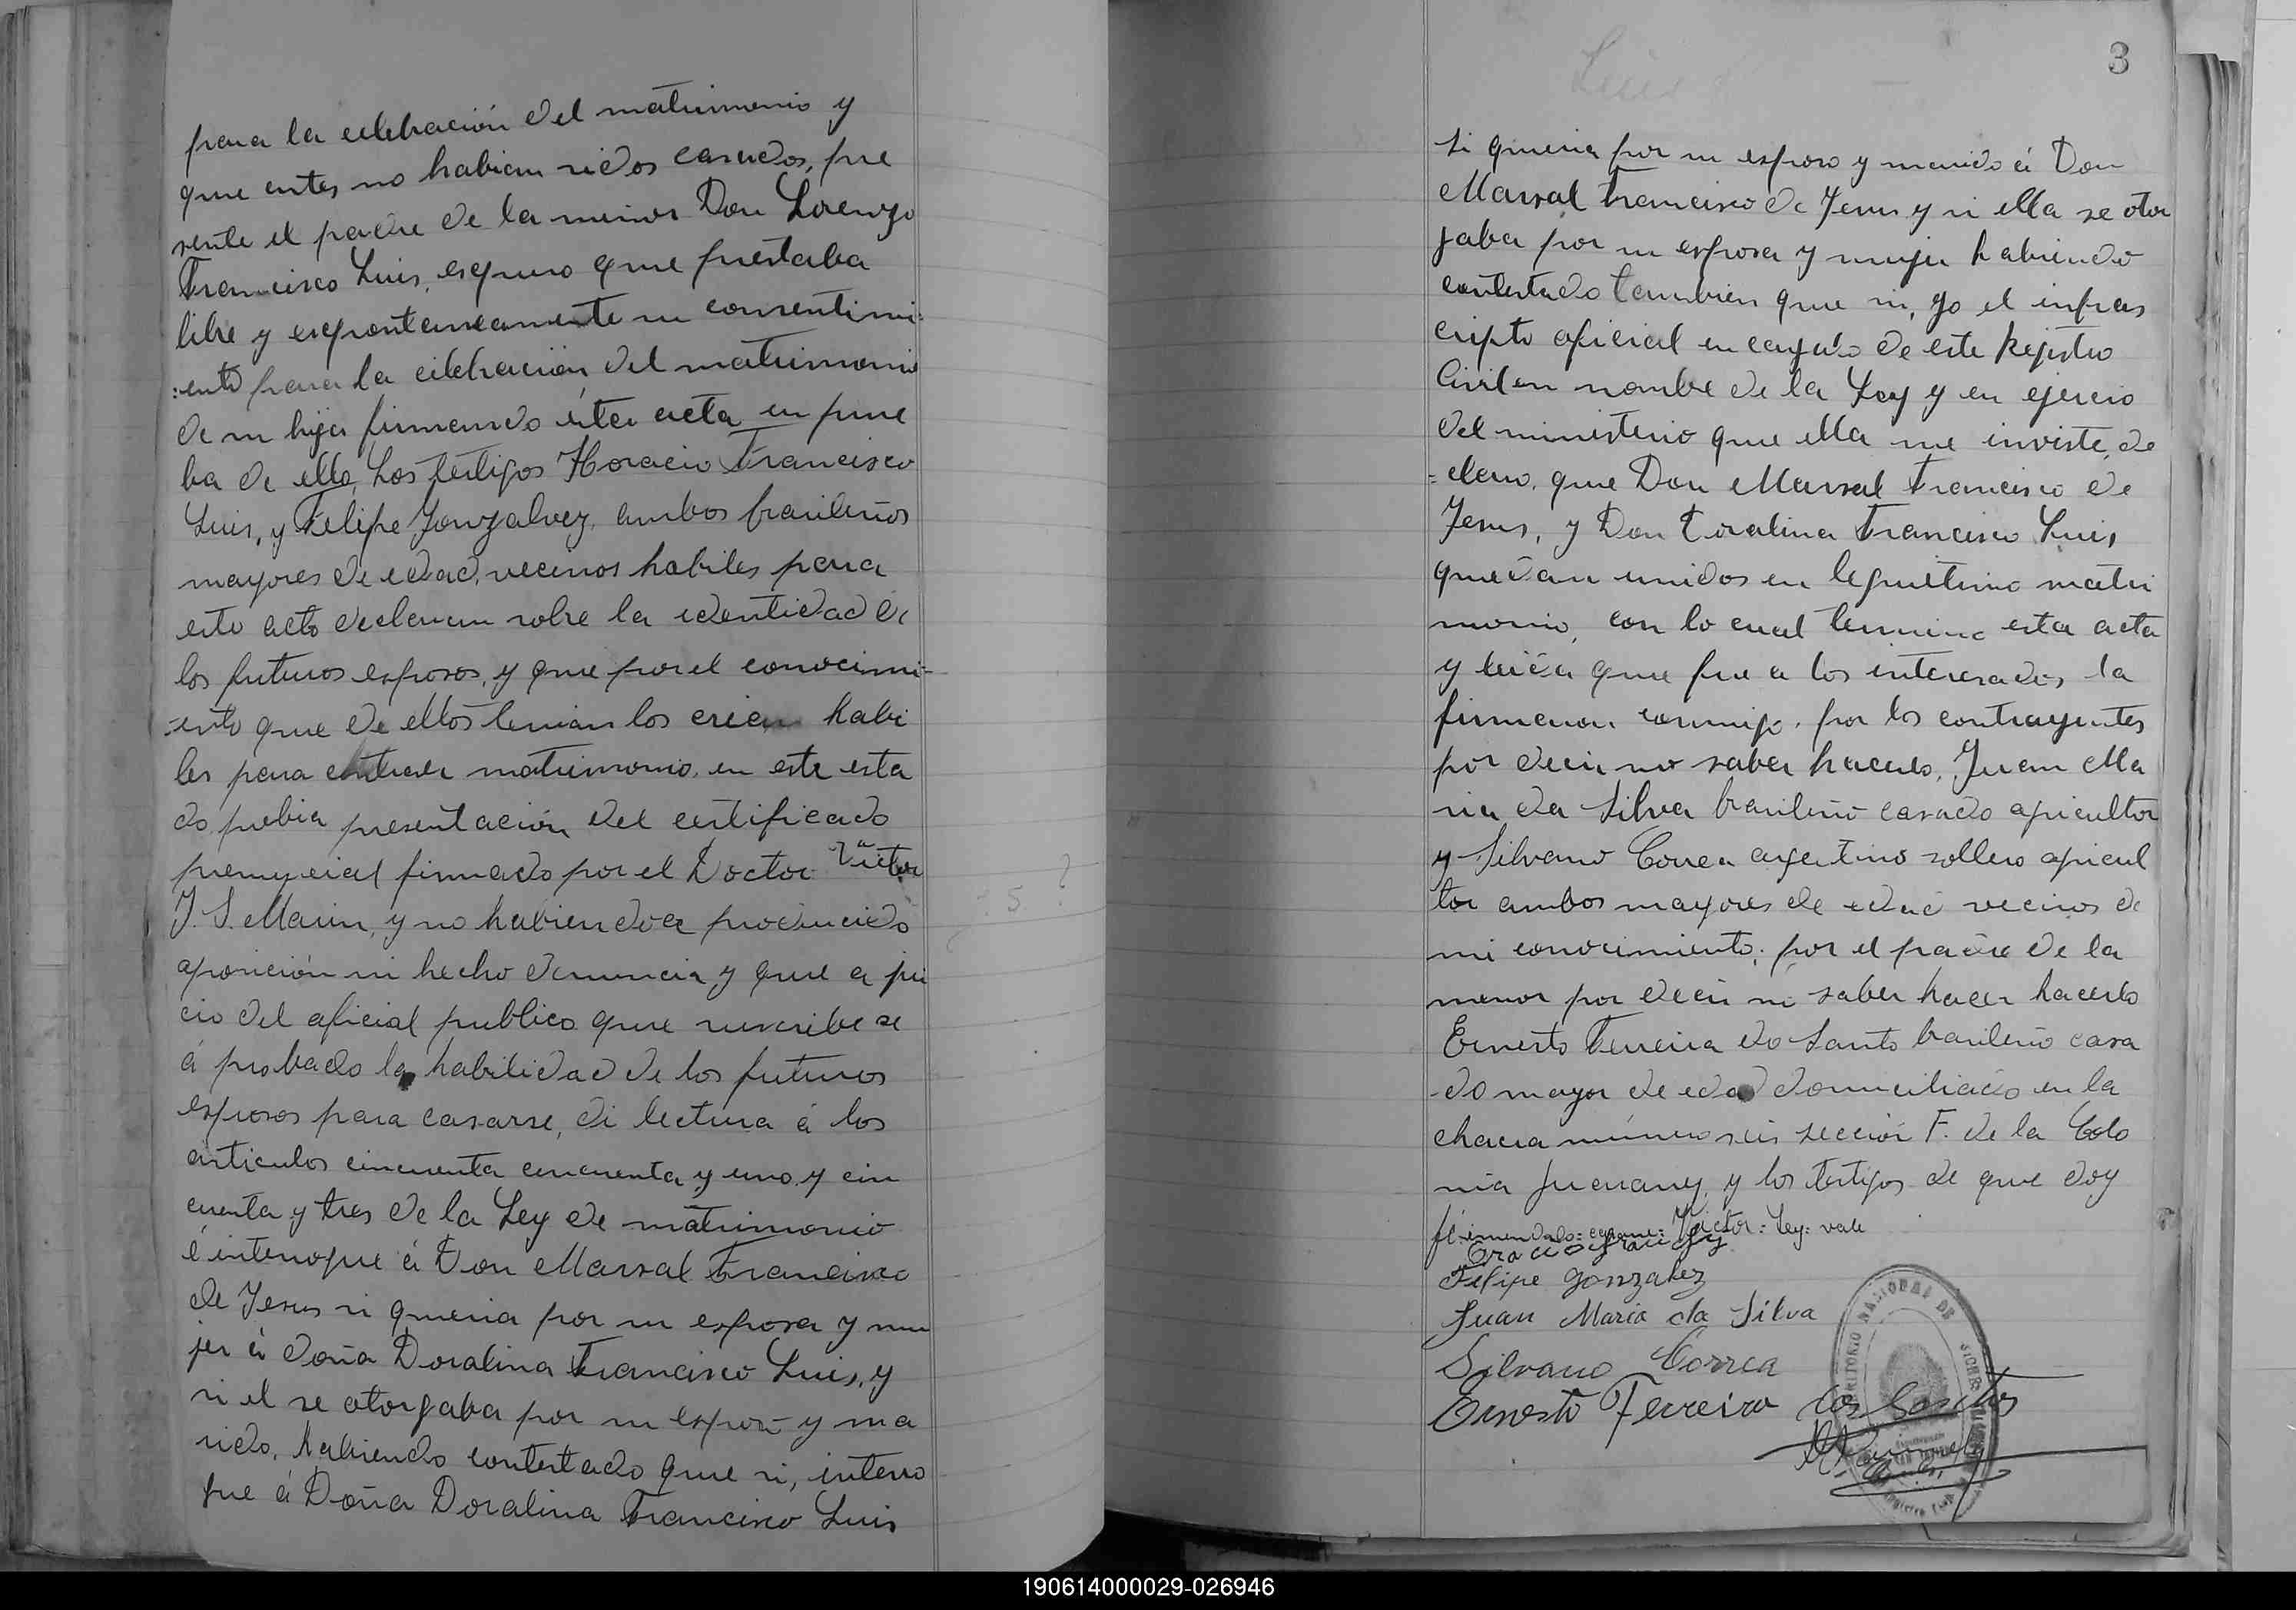 para la celebración del matrimonio y
que antes no habian sidos casados, pre
sente el padre de la menor Don Lorenzo
Francisco Luis, espuso que prestaba
libre y espontaneamente su consentimi:
:ento para la celebracion del matrimonio
de su hija firmando ésta acta en prue
ba de ello, Los testigos Horacio Francisco
Luis, y Felipe Gonzalvez, ambos brasileños
mayores de edad, vecinos habiles para
este acto declaran sobre la identidad de
los futuros esposos, y que por el conocimi-
-ento que de ellos tenian los creian habi
les para contraer matrimonio, en este esta
do, prebia presentación del certificado
prenupcial firmado por el Doctor Victor
J. S. Marin, y no habiendoce producido
oposición ni hecho denuncia y que a jui
cio del oficial publico que suscribe se
á probado la habilidad de los futuros
esposos para casarse, di lectura á los
articulos cincuenta cincuenta y uno y cin
cuenta y tres de la Ley de matrimonio
é interrogue á Don Marsal Francisco
de Jesus si queria por su esposa y mu
jer á doña Doralina Francisco Luis, y
si el se otorgaba por su esposo y ma
rido, habiendo contestado que si, interro
gue á Doña Doralina Francisco Luis
5 ?
3
Luis
si queria por su esposo y marido á Don
Marsal Francisco de Jesus y si ella se otor
gaba por su esposa y mujer habiendo
contestado tambien que si, yo el infras
cripto oficial encargado de este Rejistro
Civil en nombre de la Ley y en ejercio
del ministerio que ella me inviste, de
=claro, que Don Marsal Francisco de
Jesus, y Don Doralina Francisco Luis,
quedan unidos en leguitimo matri
monio, con lo cual termino esta acta
y leida que fue a los interesados la
firmaron conmigo, por los contrayentes
por decir no saber hacerlo, Juan Ma
ria da Silva brasileño casado agricultor
y Silvano Correa argentino soltero agricul
tor ambos mayores de edad vecinos de
mi conocimiento, por el padre de la
menor por decir no saber hacer hacerlo
Ernesto Ferreira do Santo brasileño casa
-do mayor de edad domiciliado en la
chacra número seis sección F. de la Colo
nia Jucuary, y los testigos de que doy
fé. enmendado: Victor: Ley: vale
Felipe gonzalez
Juan Maria da Silva
Silvano Correa
Ernesto Ferreira dos Santos
TERRITORIO NACIONAL DE
190614000029-026946